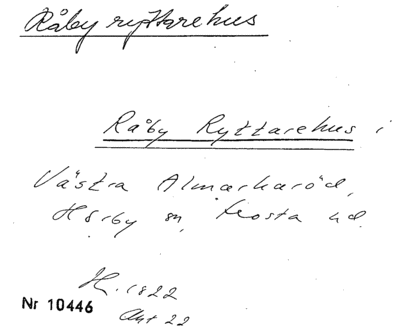 Råby ryttarehus
Råby Ryttarehus i
Västra Almarharöd,
Hörby sn, Frosta hd.
H. 1822
Akt 22
Nr 10446